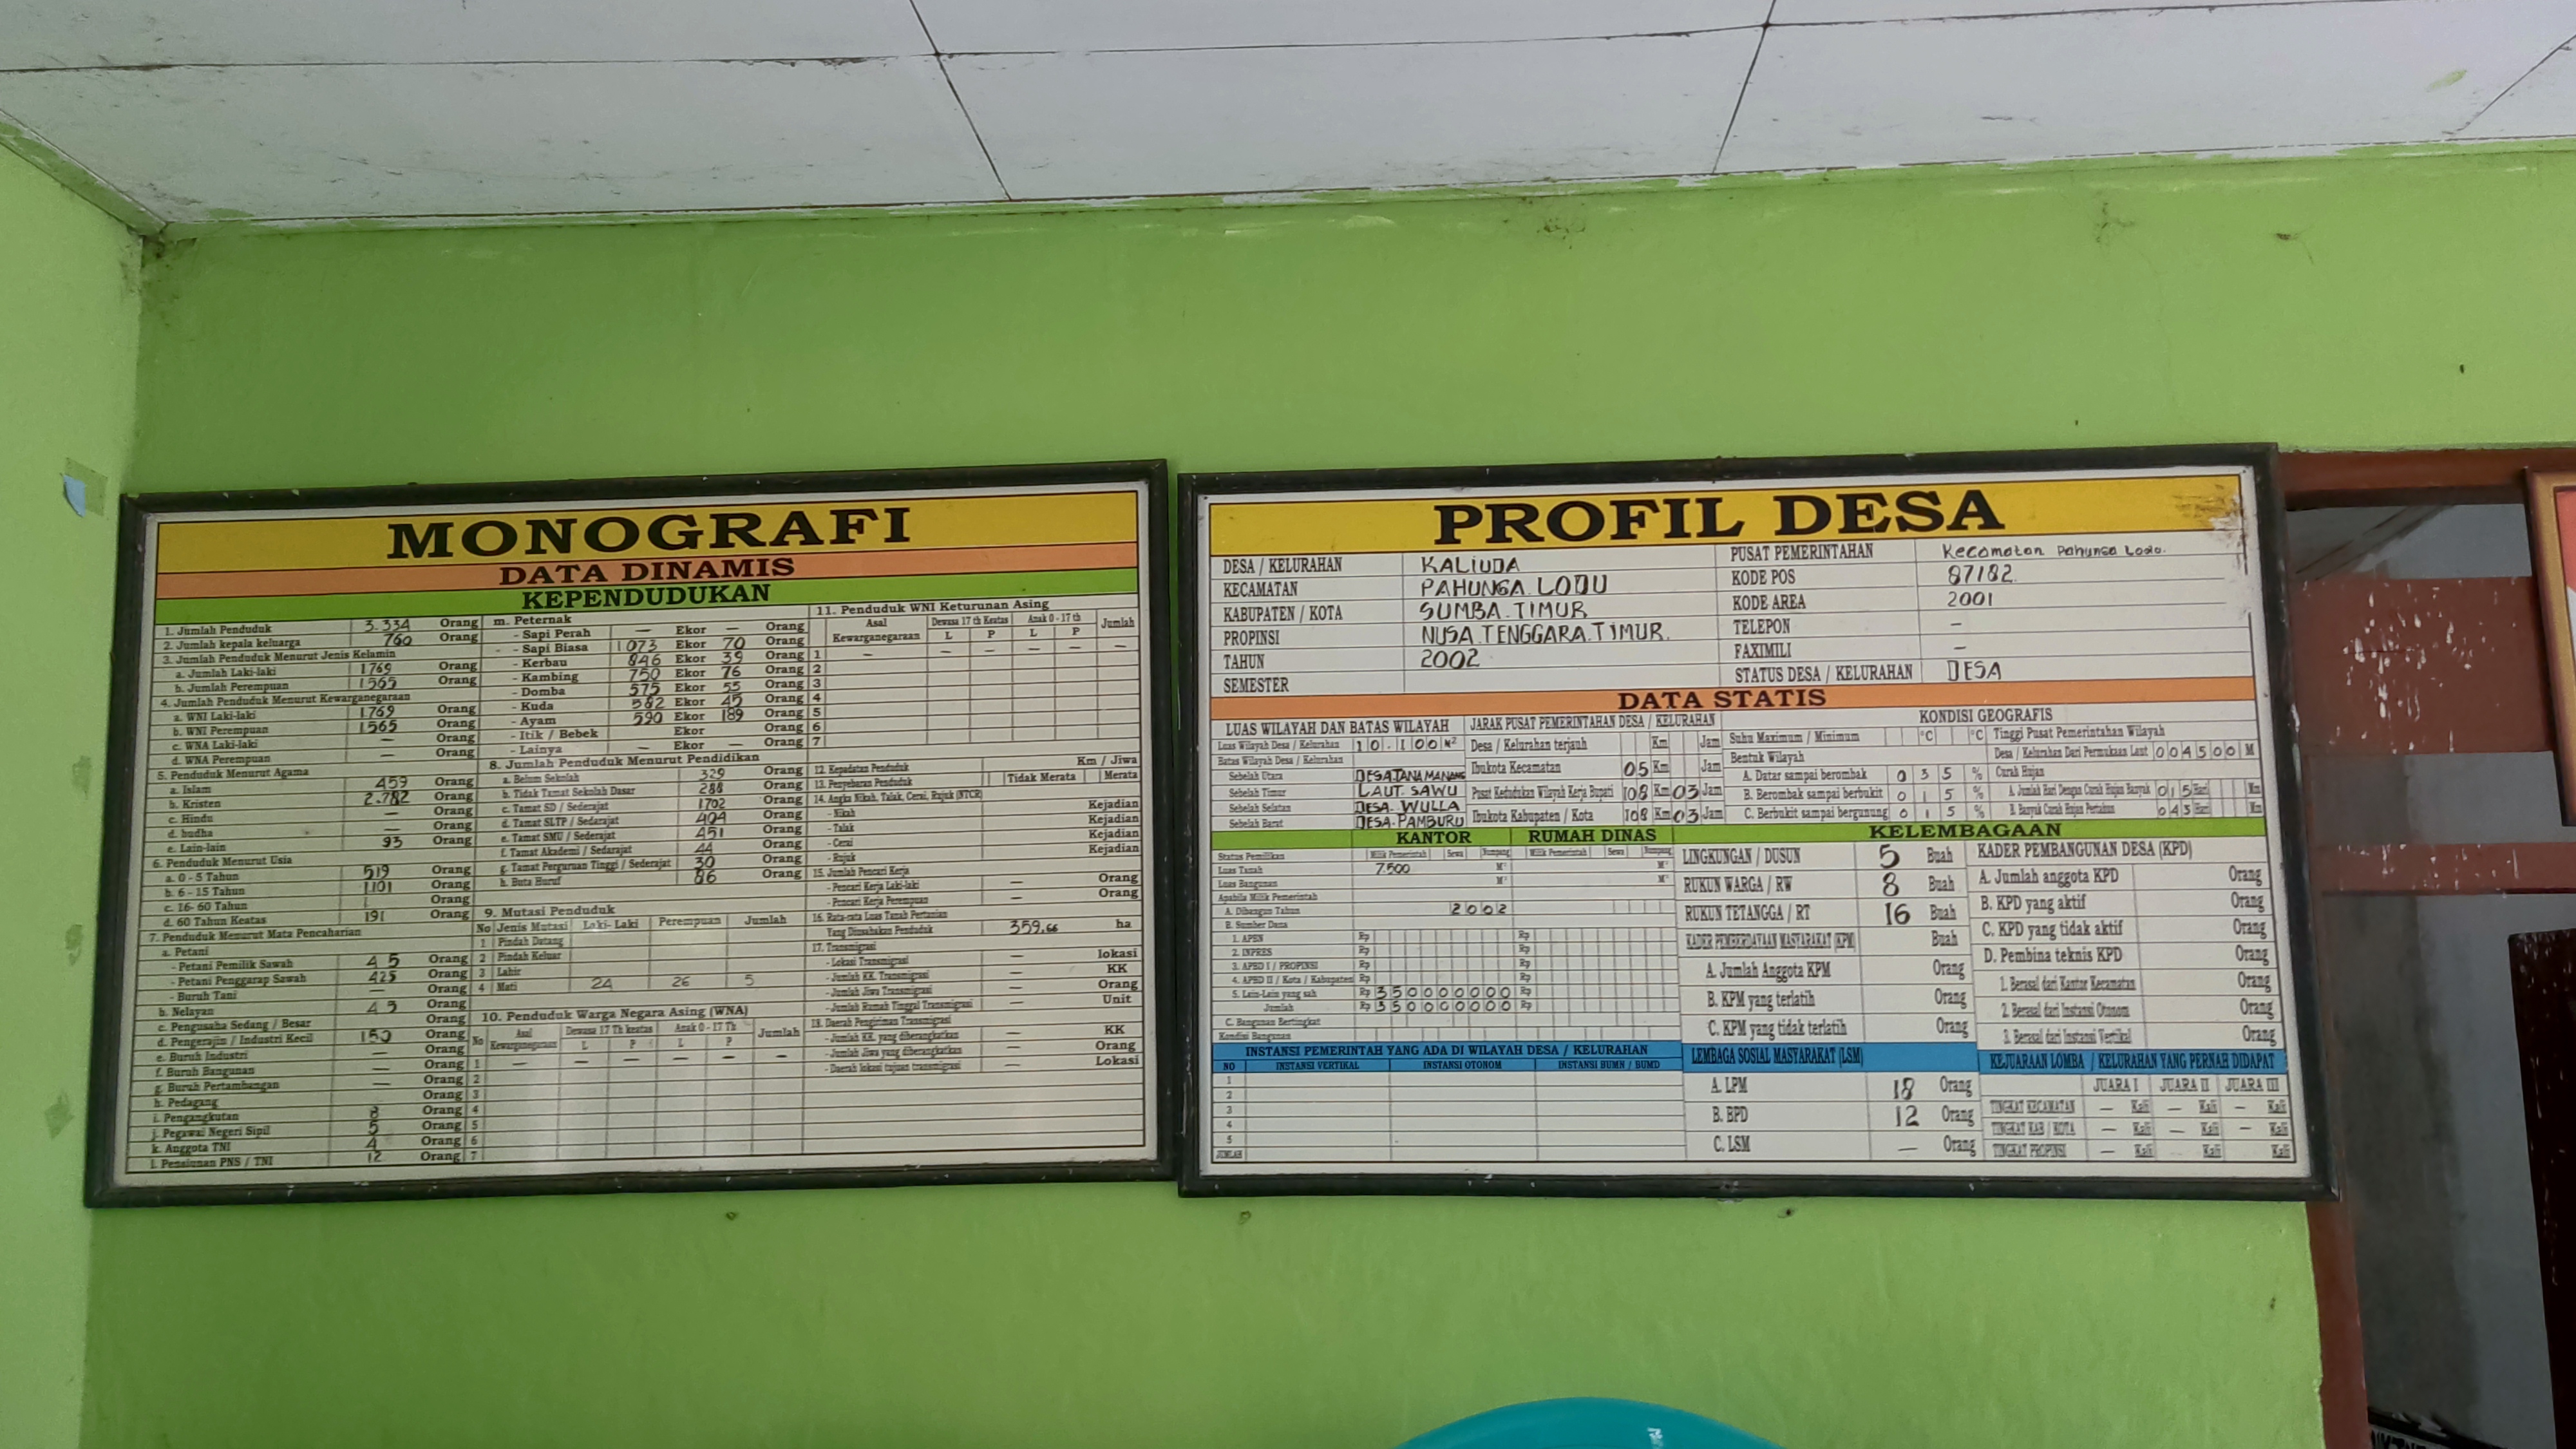 MONOGRAFI
DATA DINAMIS
KEPENDUDUKAN
1. Jumlah Penduduk 3.334 Orang
2. Jumlah kepala keluarga 760 Orang
3. Jumlah Penduduk Menurut Jenis Kelamin
a. Jumlah Laki-laki 1769 Orang
b. Jumlah Perempuan 1565 Orang
4. Jumlah Penduduk Menurut Kewarganegaraan
a. WNI Laki-laki 1769 Orang
b. WNI Perempuan 1565 Orang
c. WNA Laki-laki — Orang
d. WNA Perempuan — Orang
5. Penduduk Menurut Agama
a. Islam 459 Orang
b. Kristen 2.782 Orang
c. Hindu — Orang
d. budha — Orang
e. Lain-lain 93 Orang
6. Penduduk Menurut Usia
a. 0 - 5 Tahun 519 Orang
b. 6 - 15 Tahun 1101 Orang
c. 16- 60 Tahun Orang
d. 60 Tahun Keatas 191 Orang
7. Penduduk Menurut Mata Pencaharian
a. Petani
- Petani Pemilik Sawah 45 Orang
- Petani Penggarap Sawah 425 Orang
- Buruh Tani — Orang
b. Nelayan 43 Orang
c. Pengusaha Sedang / Besar Orang
d. Pengerajin / Industri Kecil 150 Orang
e. Buruh Industri — Orang
f. Buruh Bangunan — Orang
g. Buruh Pertambangan — Orang
h. Pedagang Orang
i. Pengangkutan 8 Orang
j. Pegawai Negeri Sipil 5 Orang
k. Anggota TNI 4 Orang
l. Pensiunan PNS / TNI 12 Orang
m. Peternak
- Sapi Perah — Ekor — Orang
- Sapi Biasa 1073 Ekor 70 Orang
- Kerbau 846 Ekor 39 Orang
- Kambing 750 Ekor 76 Orang
- Domba 575 Ekor 55 Orang
- Kuda 582 Ekor 45 Orang
- Ayam 590 Ekor 189 Orang
- Itik / Bebek Ekor Orang
- Lainya — Ekor — Orang
8. Jumlah Penduduk Menurut Pendidikan
a. Belum Sekolah 329 Orang
b. Tidak Tamat Sekolah Dasar 288 Orang
c. Tamat SD / Sederajat 1702 Orang
d. Tamat SLTP / Sederajat 404 Orang
e. Tamat SMU / Sederajat 451 Orang
f. Tamat Akademi / Sedarajat 44 Orang
g. Tamat Perguruan Tinggi / Sederajat 30 Orang
h. Buta Huruf 86 Orang
9. Mutasi Penduduk
No Jenis Mutasi Laki-Laki Perempuan Jumlah
1 Pindah Datang
2 Pindah Keluar
3 Lahir
4 Mati 24 26 5
10. Penduduk Warga Negara Asing (WNA)
No Asal Kewarganegaraan Dewasa 17 Th keatas Anak 0 - 17 Th Jumlah
L P L P
1 — — — — — —
2
3
4
5
6
7
11. Penduduk WNI Keturunan Asing
Asal Kewarganegaraan Dewasa 17 th Keatas Anak 0 - 17 th Jumlah
L P L P
1 — — — — — —
2
3
4
5
6
7
12. Kepadatan Penduduk Km / Jiwa
13. Penyebaran Penduduk Tidak Merata Merata
14. Angka Nikah, Talak, Cerai, Rujuk (NTCR)
- Nikah Kejadian
- Talak Kejadian
- Cerai Kejadian
- Rujuk Kejadian
15. Jumlah Pencari Kerja
- Pencari Kerja Laki-laki — Orang
- Pencari Kerja Perempuan — Orang
16. Rata-rata Luas Tanah Pertanian
Yang Diusahakan Penduduk 359.66 ha
17. Transmigrasi
- Lokasi Transmigrasi — lokasi
- Jumlah KK. Transmigrasi — KK
- Jumlah Jiwa Transmigrasi — Orang
- Jumlah Rumah Tinggal Transmigrasi — Unit
18. Daerah Pengiriman Transmigrasi
- Jumlah KK. yang diberangkatkan — KK
- Jumlah Jiwa yang diberangkatkan — Orang
- Daerah lokasi tujuan transmigrasi — Lokasi
PROFIL DESA
DESA / KELURAHAN KALIUDA
KECAMATAN PAHUNGA LODU
KABUPATEN / KOTA SUMBA TIMUR
PROPINSI NUSA TENGGARA TIMUR.
TAHUN 2002
SEMESTER
PUSAT PEMERINTAHAN Kecamatan Pahunga Lodo.
KODE POS 87182
KODE AREA 2001
TELEPON —
FAXIMILI —
STATUS DESA / KELURAHAN DESA
DATA STATIS
LUAS WILAYAH DAN BATAS WILAYAH
Luas Wilayah Desa / Kelurahan 10.100 M²
Batas Wilayah Desa / Kelurahan
Sebelah Utara DESA.TANA MANANG
Sebelah Timur LAUT. SAWU
Sebelah Selatan DESA. WULLA
Sebelah Barat DESA. PAMBURU
JARAK PUSAT PEMERINTAHAN DESA / KELURAHAN
Desa / Kelurahan terjauh Km Jam
Ibukota Kecamatan 05 Km Jam
Pusat Kedudukan Wilayah Kerja Bupati 108 Km 03 Jam
Ibukota Kabupaten / Kota 108 Km 03 Jam
KONDISI GEOGRAFIS
Suhu Maximum / Minimum °C °C
Bentuk Wilayah
A. Datar sampai berombak 035 %
B. Berombak sampai berbukit 015 %
C. Berbukit sampai bergunung 015 %
Tinggi Pusat Pemerintahan Wilayah
Desa / Kelurahan Dari Permukaan Laut 004500 M
Curah Hujan
A. Jumlah Hari Dengan Curah Hujan Banyak 015 Hari Mm
B. Banyak Curah Hujan Pertahun 045 Hari Mm
KANTOR RUMAH DINAS
Status Pemilikan Milik Pemerintah Sewa Numpang Milik Pemerintah Sewa Numpang
Luas Tanah 7500 M² M²
Luas Bangunan M² M²
Apabila Milik Pemerintah
A. Dibangun Tahun 2002
B. Sumber Dana
1. APBN Rp Rp
2. INPRES Rp Rp
3. APBD I / PROPINSI Rp Rp
4. APBD II / Kota / Kabupaten Rp Rp
5. Lain-Lain yang sah Rp 350000000 Rp
Jumlah Rp 350000000 Rp
C. Bangunan Bertingkat
Kondisi Bangunan
INSTANSI PEMERINTAH YANG ADA DI WILAYAH DESA / KELURAHAN
NO INSTANSI VERTIKAL INSTANSI OTONOM INSTANSI BUMN / BUMD
1
2
3
4
5
JUMLAH
KELEMBAGAAN
LINGKUNGAN / DUSUN 5 Buah
RUKUN WARGA / RW 8 Buah
RUKUN TETANGGA / RT 16 Buah
KADER PEMBERDAYAAN MASYARAKAT (KPM) Buah
A. Jumlah Anggota KPM Orang
B. KPM yang terlatih Orang
C. KPM yang tidak terlatih Orang
LEMBAGA SOSIAL MASYARAKAT (LSM)
A. LPM 18 Orang
B. BPD 12 Orang
C. LSM — Orang
KADER PEMBANGUNAN DESA (KPD)
A. Jumlah anggota KPD Orang
B. KPD yang aktif Orang
C. KPD yang tidak aktif Orang
D. Pembina teknis KPD Orang
1. Berasal dari Kantor Kecamatan Orang
2. Berasal dari Instansi Otonom Orang
3. Berasal dari Instansi Vertikal Orang
KEJUARAAN LOMBA / KELURAHAN YANG PERNAH DIDAPAT
JUARA I JUARA II JUARA III
TINGKAT KECAMATAN — Kali — Kali — Kali
TINGKAT KAB / KOTA — Kali — Kali — Kali
TINGKAT PROPINSI — Kali Kali Kali